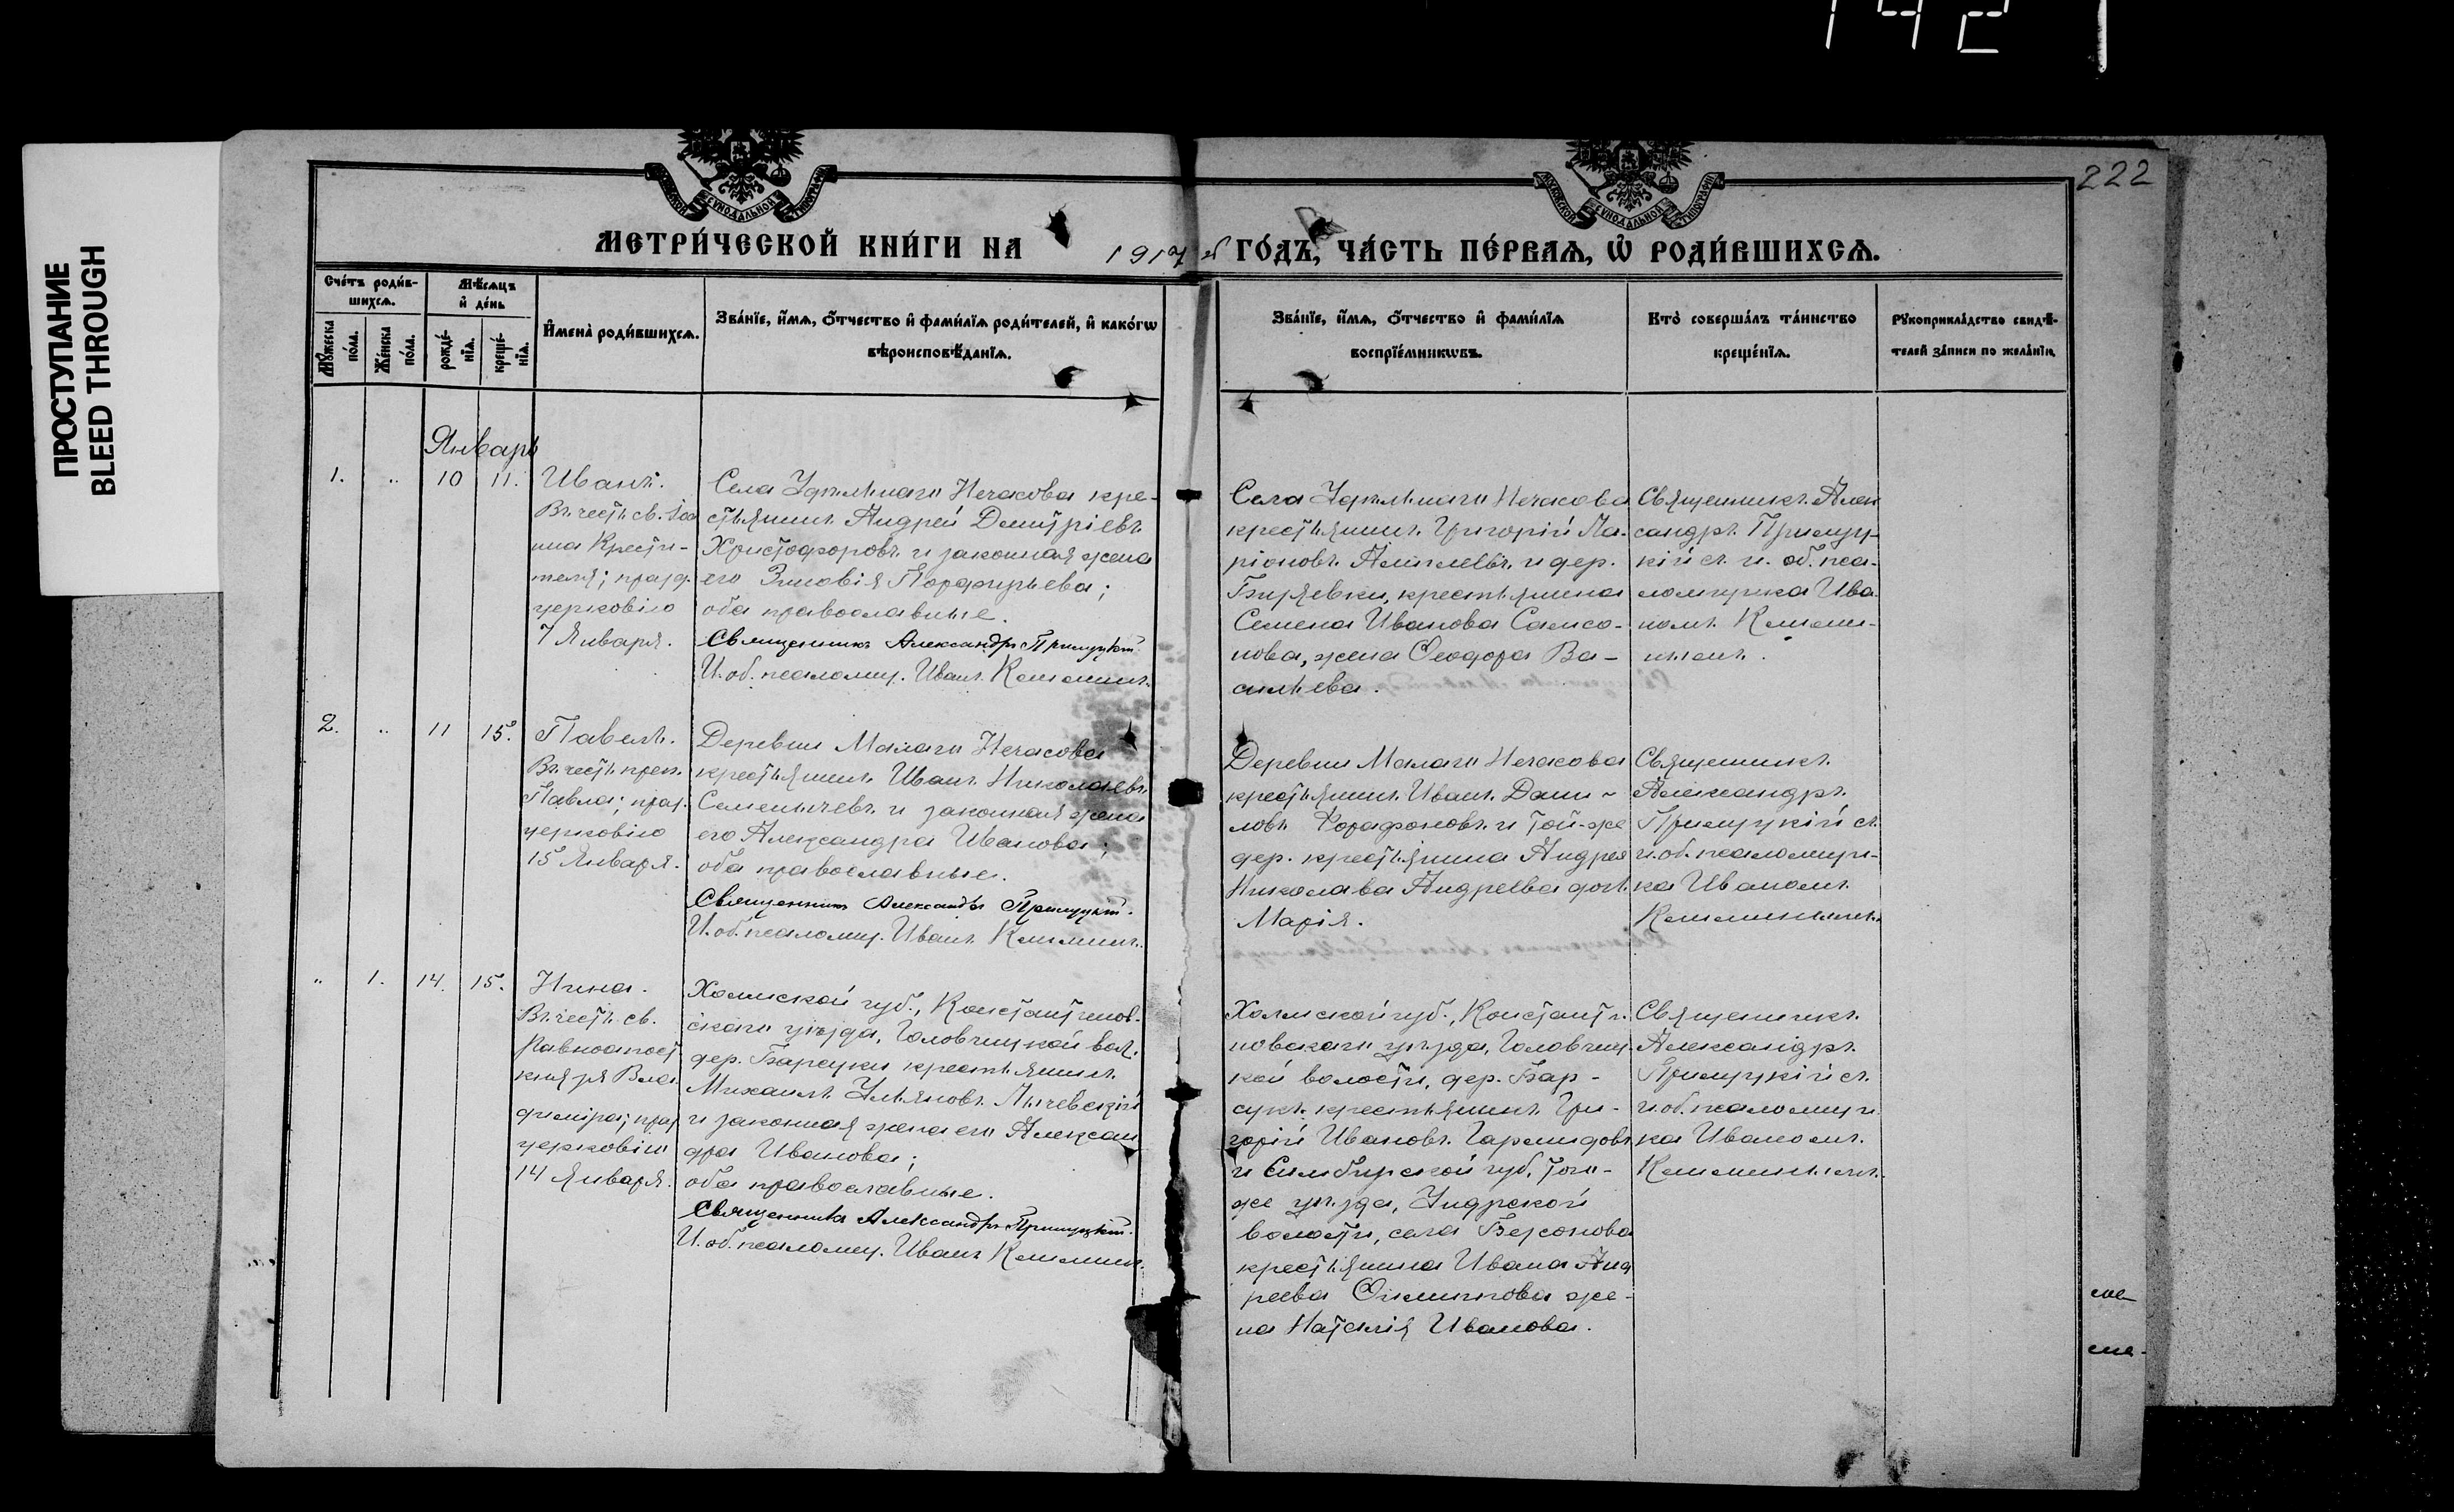 1421
ПРОСТУПАНИЕ
BLEED THROUGH
222
МОСКОВСКОЙ СѴНОДАЛЬНОЙ ТИПОГРАФІИ
МОСКОВСКОЙ СѴНОДАЛЬНОЙ ТИПОГРАФІИ
МЕТРИ́ЧЕСКОЙ КНИ́ГИ НА 1917 й ГО́ДЪ, ЧА́СТЬ ПЕ́РВАѦ, Ѡ҆ РОДИ́ВШИХСѦ.
Сче́тъ роди́в-
шихсѧ.
Мꙋ́жеска
по́ла.
Же́нска
по́ла.
Мѣ́сѧцъ
и҆ де́нь
рожде́-
нїѧ.
креще́-
нїѧ.
И҆мена̀ роди́вшихсѧ.
Зва́нїе, и҆́мѧ, ѻ҆́тчество и҆ фами́лїѧ роди́телей, и҆ како́гѡ
вѣроисповѣ́данїѧ.
Зва́нїе, и҆́мѧ, ѻ҆́тчество и҆ фами́лїѧ
воспрїе́мникѡвъ.
Кто̀ соверша́лъ та́инство
креще́нїѧ.
Рꙋкоприкла́дство свидѣ́-
телей за́писи по жела́нїю.
Январь
1. „ 10 11.
Иванъ.
Въ честь св. Іоа
нна Крести-
теля; празд.
церковію
7 Января.
Села Удѣльнаго Нечасова кре-
стьянинъ Андрей Димитріевъ
Христофоровъ и законная жена
его Зиновія Порфирьева;
оба православные.
Священникъ Александръ Прилуцкій.
И. об. псаломщ. Иванъ Келеминъ.
Села Удѣльнаго Нечасова
крестьянинъ Григорій Ла-
ріоновъ и дер.
крестьянина
Семена Иванова Самсо-
нова, жена Ѳеодора Ва-
сильева.
Священникъ Алек
сандръ Прилуц-
кій съ и. об. пса-
ломщика Ива
номъ
2. „ 11 15.
Павелъ.
Въ честь преп.
Павла; праз.
церковію
15 Января.
Деревни Малаго Нечасова
крестьянинъ Иванъ Николаевъ
Семенычевъ и законная жена
его Александра Иванова;
оба православные.
Священникъ Александръ Прилуцкій.
И. об. псаломщ. Иванъ Келеминъ.
Деревни Малаго Нечасова
крестьянинъ Иванъ Дани-
ловъ Форафоновъ и той-же
дер. крестьянина Андрея
Николаева Андреева дочь
Марія.
Священникъ
Александръ
Прилуцкій съ
и. об. псаломщи-
ка Иваномъ
Келеминымъ.
„ 1. 14. 15.
Нина.
Въ честь св.
Равноапост
князя Вла-
диміра; праз
церковію
14 Января.
Холмской губ., Константинов-
скаго уѣзда, Головчицкой вол.
дер. Барсуки крестьянинъ
Михаилъ Ульяновъ
и законная жена его Алексан
дра Иванова;
оба православные.
Священникъ Александръ Прилуцкій.
И. об. псаломщ. Иванъ Келеминъ.
Холмской губ., Константи-
новскаго уѣзда, Головчиц-
кой волости, дер. Бар-
сукъ крестьянинъ Гри-
горій Ивановъ
и Симбирской губ. того-
же уѣзда,
волости, села
крестьянина Ивана Анд
реева же-
на Наталія Иванова.
Священникъ
Александръ
Прилуцкій съ
и. об. псаломщи
ка Иваномъ
Келеминымъ.